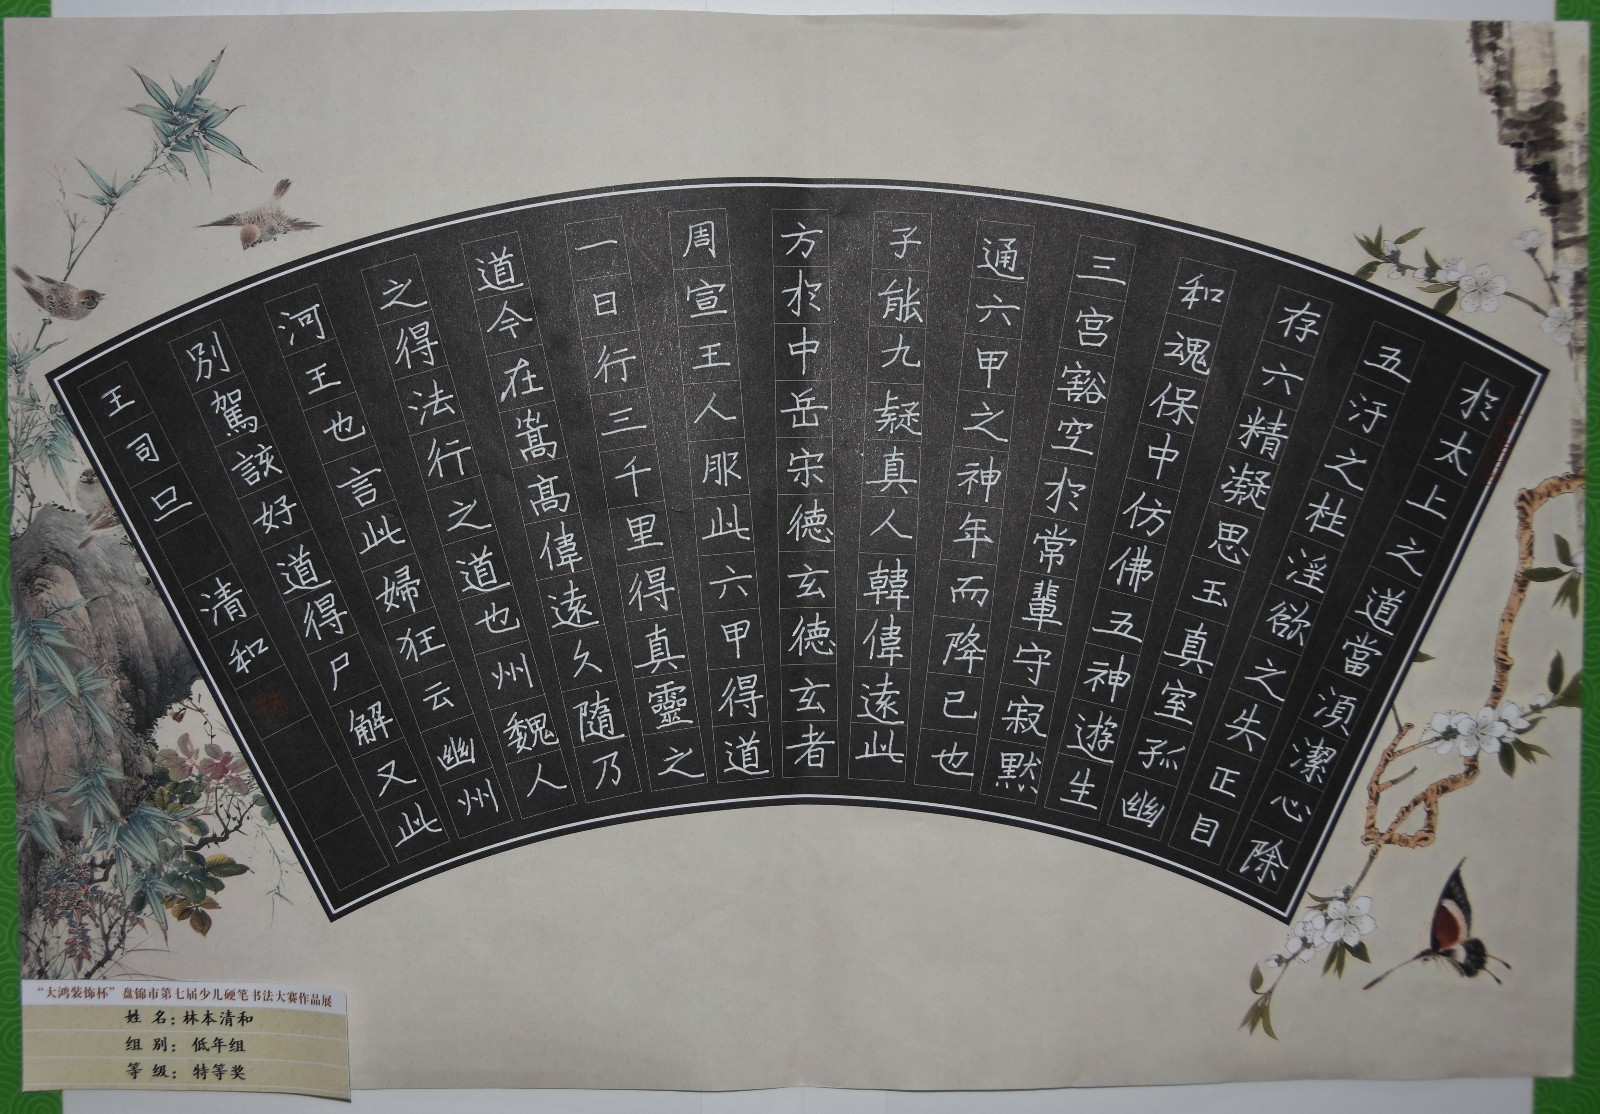 於太上之道當湏潔心除
五汙之杜淫欲之失正目
存六精凝思玉真室孤幽
和魂保中仿佛五神遊生
三宫豁空於常輩守寂默
通六甲之神年而降已也
子能九疑真人韓偉遠此
方於中岳宋德玄德玄者
周宣王人服此六甲得道
一日行三千里得真靈之
道今在嵩高偉遠久隨乃
之得法行之道也州魏人
河王也言此婦狂云幽州
別駕該好道得尸解又此
王司 清和
“大鸿装饰杯”盘锦市第七届少儿硬笔书法大赛作品展
姓 名：林本清和
组 别：低年组
等 级：特等奖